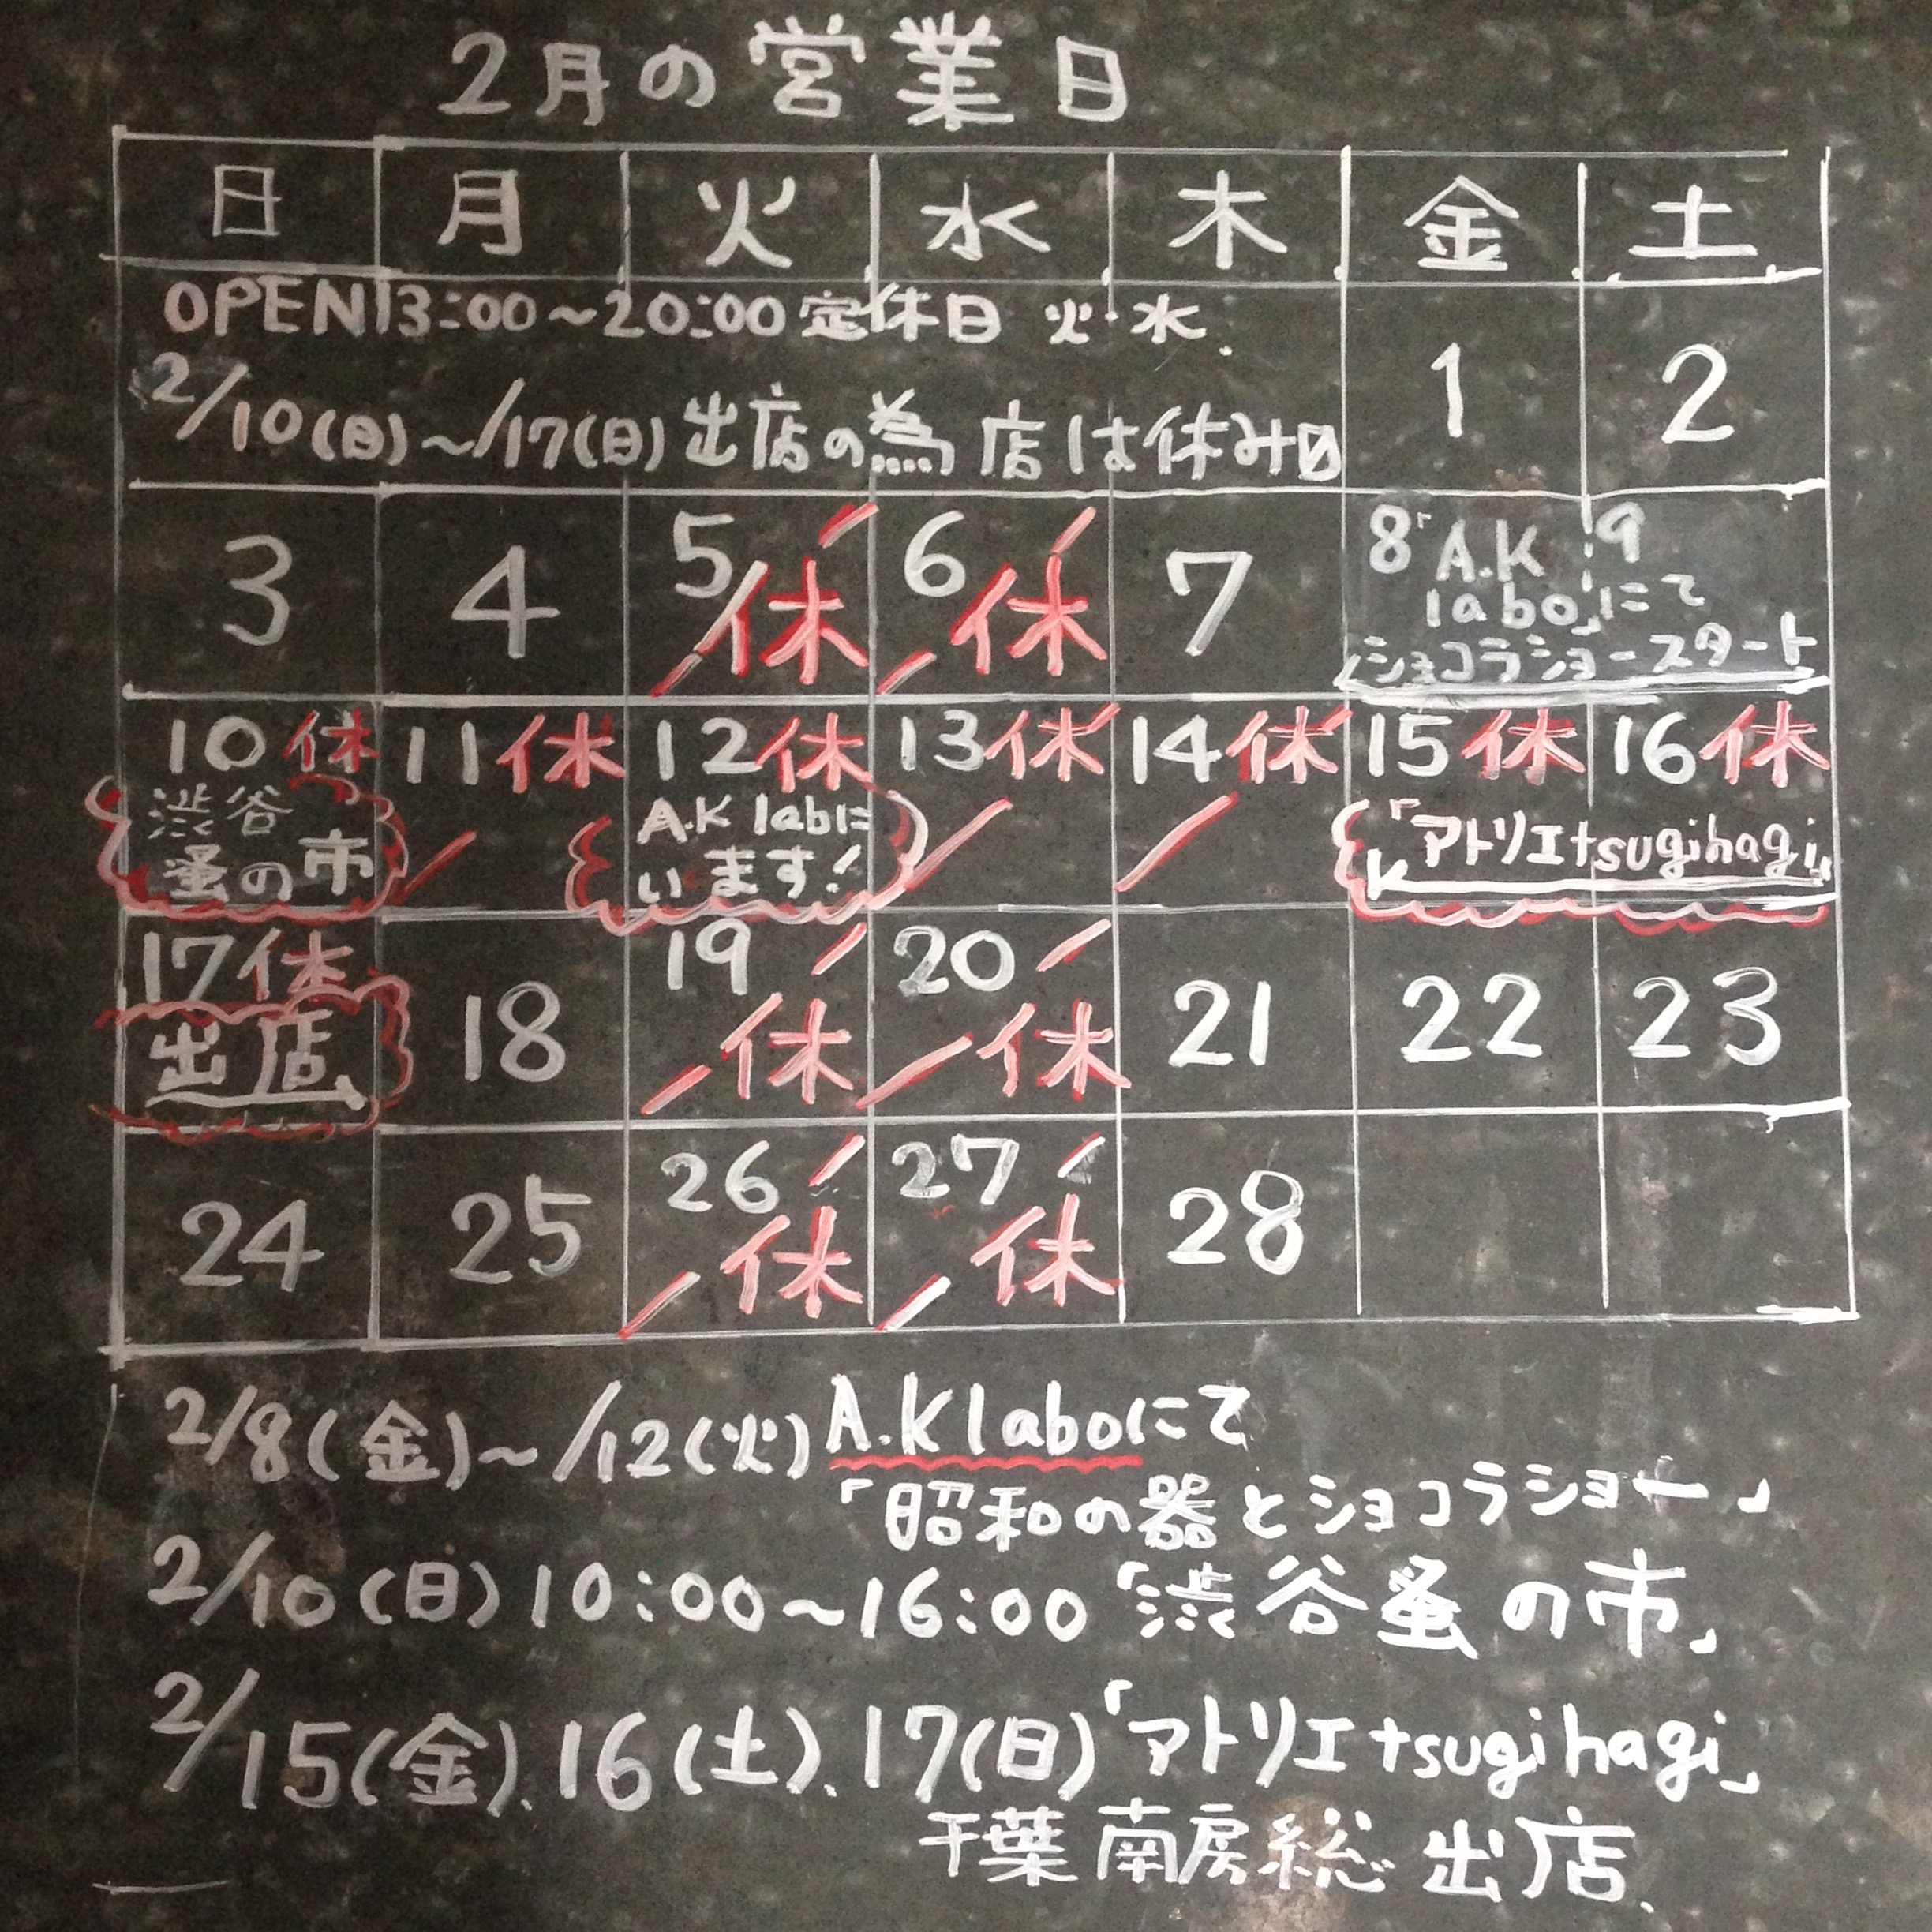 2月の営業日
日 月 火 水 木 金 土
OPEN 13:00~20:00 定休日 火・水.
2/10(日)~/17(日)出店の為 店は休み
1 2
3 4 5 休 6 休 7 8 9
「A.K labo」にて
ショコラショースタート
10 休 11 休 12 休 13 休 14 休 15 休 16 休
渋谷
蚤の市
A.K labに
います!
「アトリエtsugihagi」
17 休 18 19 休 20 休 21 22 23
出店
24 25 26 休 27 休 28
2/8(金)~/12(火)A.K laboにて
「昭和の器とショコラショー」
2/10(日)10:00~16:00「渋谷蚤の市」
2/15(金)、16(土)、17(日)「アトリエtsugihagi」
千葉南房総 出店.